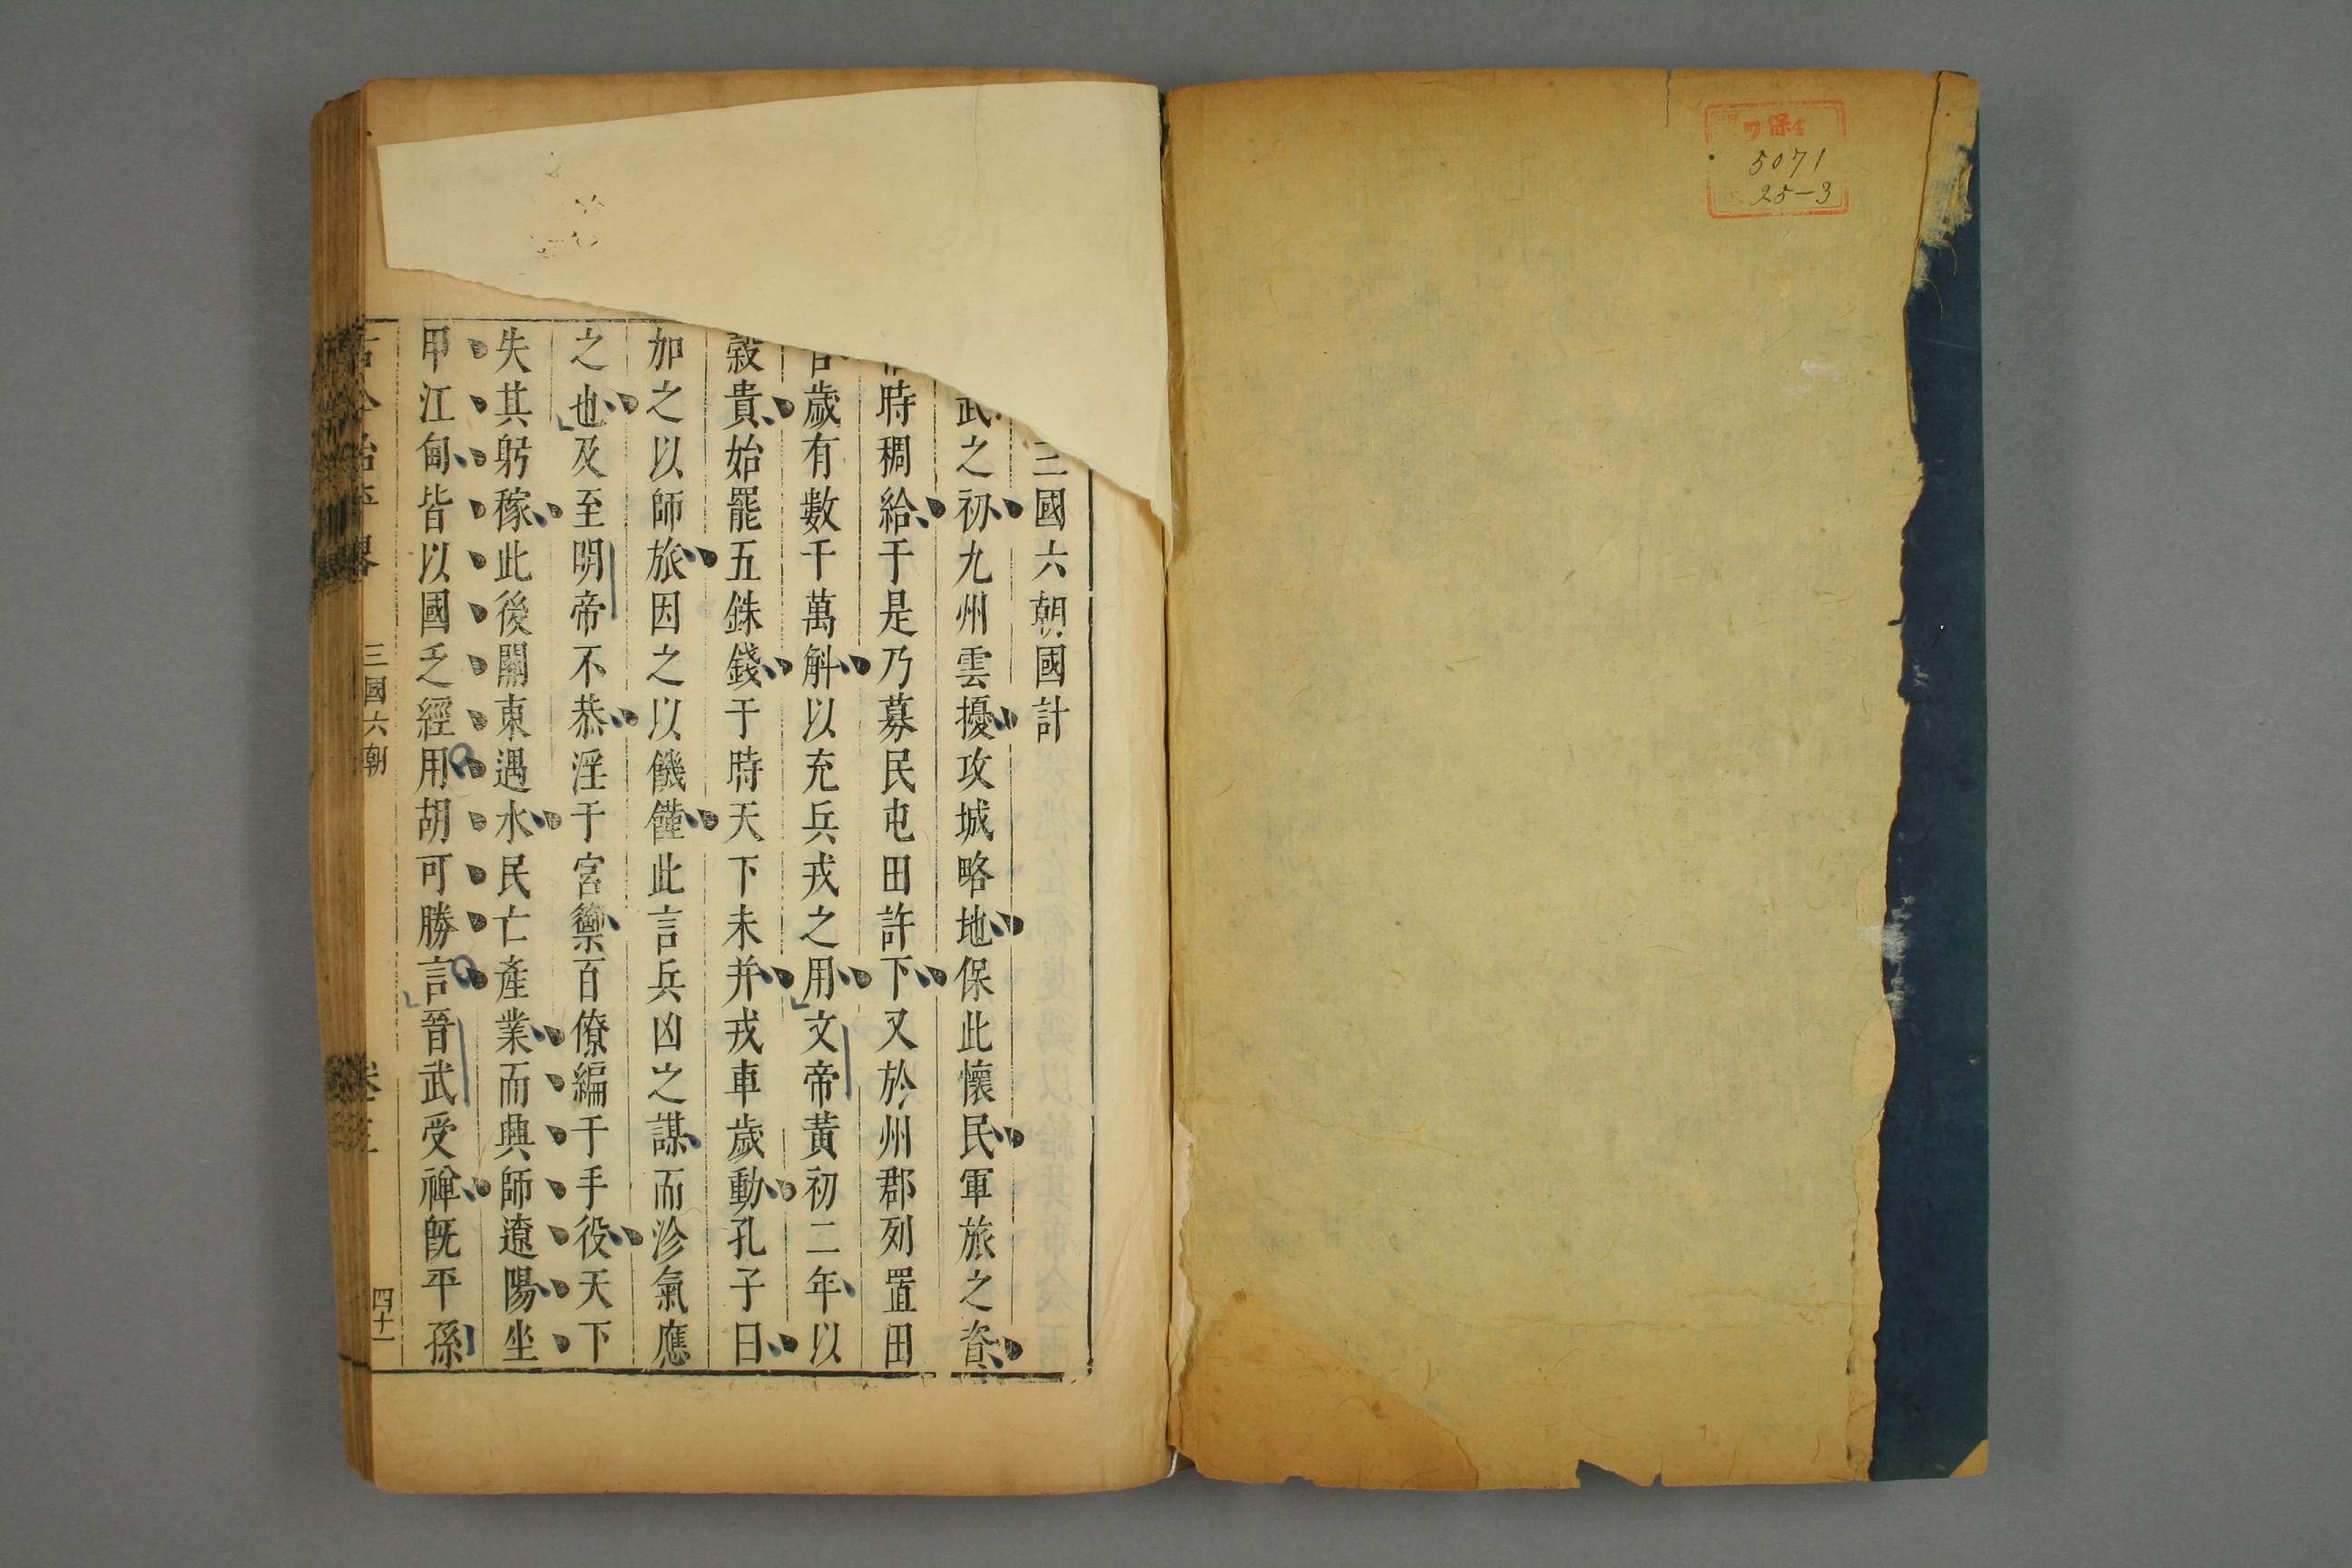 保4
5071
25-3
三國六朝國計
武之初九州雲擾攻城略地保此懷民軍旅之資
時稠給于是乃募民屯田許下又於州郡列置田
官歲有數千萬斛以充兵戎之用文帝黃初二年以
穀貴始罷五銖錢于時天下未并戎車歲動孔子曰
加之以師旅因之以饑饉此言兵凶之謀而沴氣應
之也及至明帝不恭淫于宮籞百僚編于手役天下
失其躬稼此後關東遇水民亡產業而興師遼陽坐
甲江甸皆以國乏經用胡可勝言晉武受禪旣平孫
三國六朝
四十一